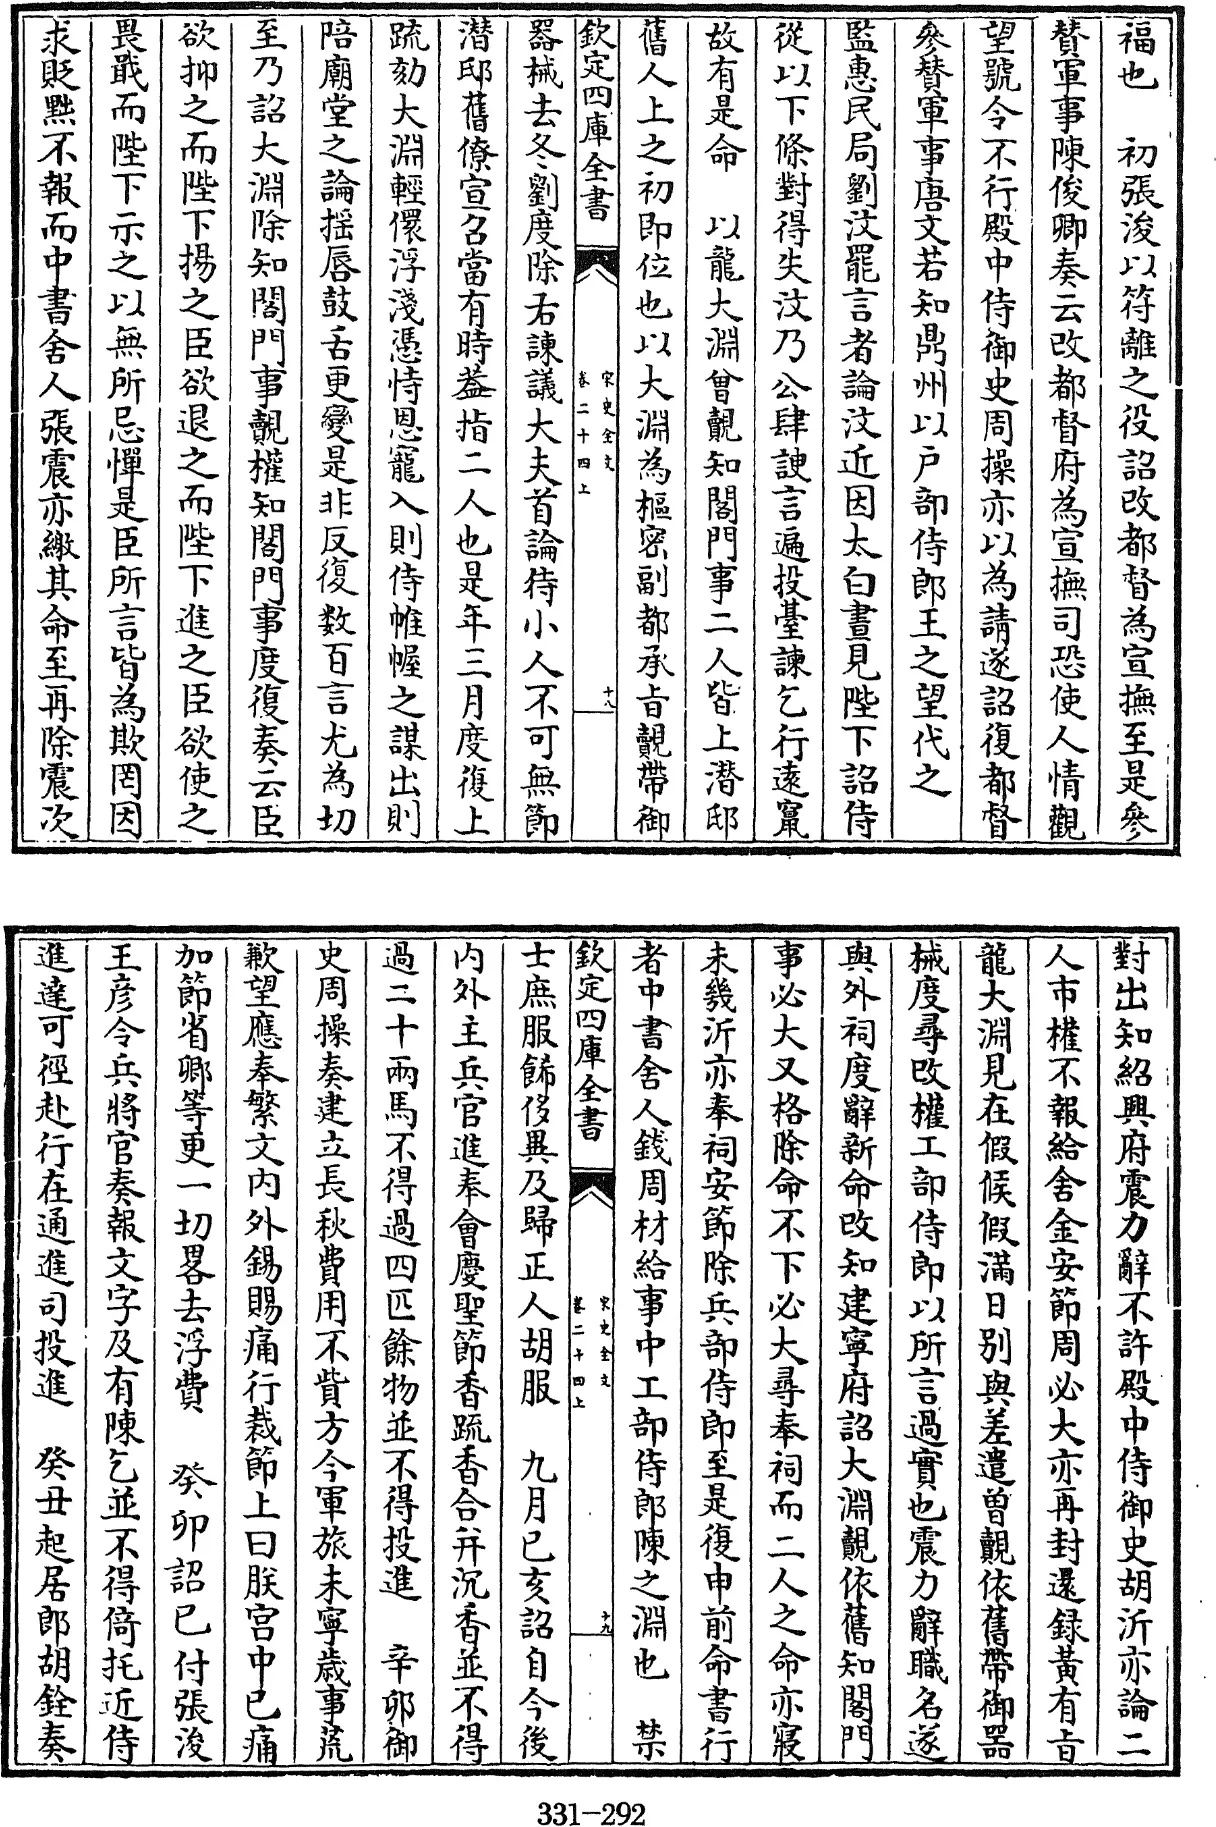 福也　初張浚以符離之役詔改都督為宣撫至是參
賛軍事陳俊卿奏云改都督府為宣撫司恐使人情觀
望號令不行殿中侍御史周操亦以為請遂詔復都督
參賛軍事唐文若知鼎州以户部侍郎王之望代之
監惠民局劉汶罷言者論汶近因太白晝見陛下詔侍
從以下條對得失汶乃公肆諛言遍投臺諫乞行逺竄
故有是命　以龍大淵曾覿知閤門事二人皆上潛邸
舊人上之初即位也以大淵為樞密副都承旨覿帶御
欽定四庫全書
宋史全文
卷二十四上
十八
器械去冬劉度除右諫議大夫首論待小人不可無節
潛邸舊僚宣召當有時葢指二人也是年三月度復上
疏劾大淵輕儇浮淺憑恃恩寵入則侍帷幄之謀出則
陪廟堂之論揺唇鼓舌更變是非反復数百言尤為切
至乃詔大淵除知閤門事覿權知閤門事度復奏云臣
欲抑之而陛下揚之臣欲退之而陛下進之臣欲使之
畏戢而陛下示之以無所忌憚是臣所言皆為欺罔因
求貶黜不報而中書舍人張震亦繳其命至再除震次
對出知紹興府震力辭不許殿中侍御史胡沂亦論二
人市權不報給舍金安節周必大亦再封還録黄有旨
龍大淵見在假候假滿日别與差遣曽覿依舊帶御器
械度尋改權工部侍郎以所言過實也震力辭職名遂
與外祠度辭新命改知建寧府詔大淵覿依舊知閤門
事必大又格除命不下必大尋奉祠而二人之命亦寢
未幾沂亦奉祠安節除兵部侍郎至是復申前命書行
者中書舍人錢周材給事中工部侍郎陳之淵也　禁
欽定四庫全書
宋史全文
卷二十四上
十九
士庶服飾侈異及歸正人胡服　九月已亥詔自今後
内外主兵官進奉會慶聖節香疏香合并沉香並不得
過二十兩馬不得過四匹餘物並不得投進　辛卯御
史周操奏建立長秋費用不貲方今軍旅未寧歳事荒
歉望應奉繁文内外錫賜痛行裁節上曰朕宫中已痛
加節省卿等更一切畧去浮費　癸卯詔已付張浚
王彦令兵將官奏報文字及有陳乞並不得倚托近侍
進逹可徑赴行在通進司投進　癸丑起居郎胡銓奏
331-292